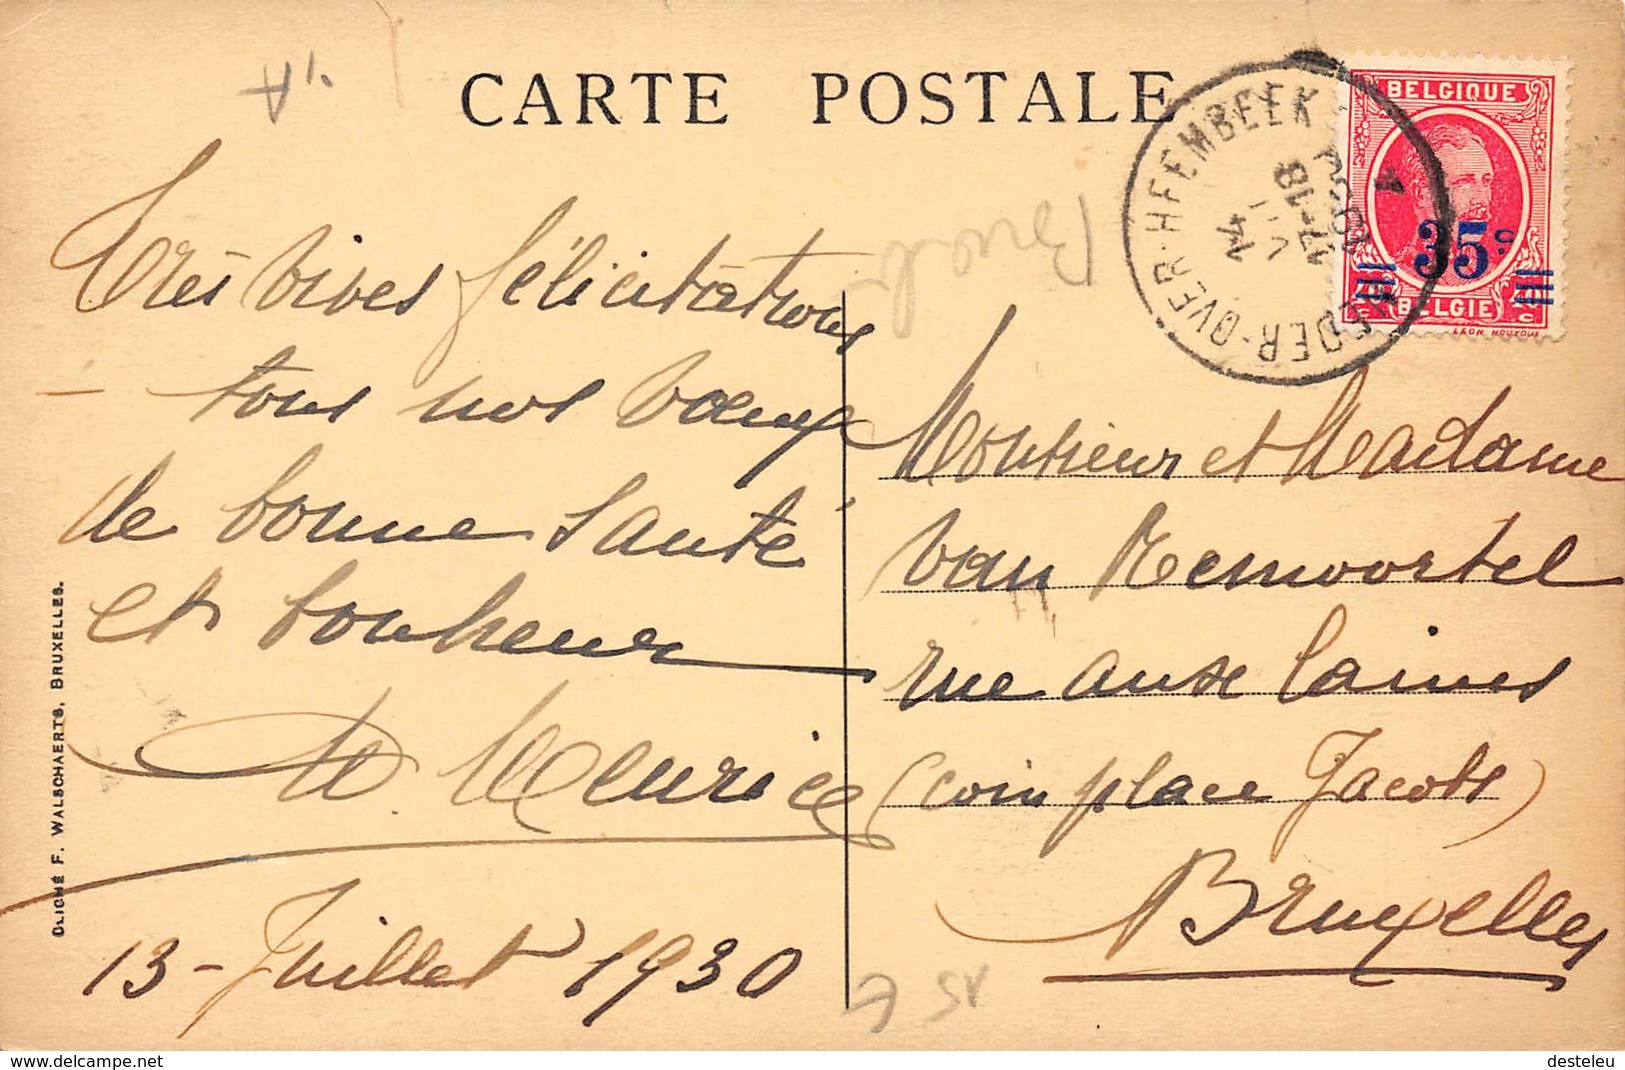 CARTE POSTALE
Très vives félicitations
tous nos voeux
de bonne santé
et bonheur
Meurice
13 - Juillet 1930
Monsieur et Madame
van Remoortel
rue aux laines
(coin place Jacobs)
Bruxelles
NEDER-OVER-HEEMBEEK
17-18
14 VII
1930
BELGIQUE
35c
BELGIE
CLICHÉ F. WALSCHAERTS, BRUXELLES.
www.delcampe.net
desteleu